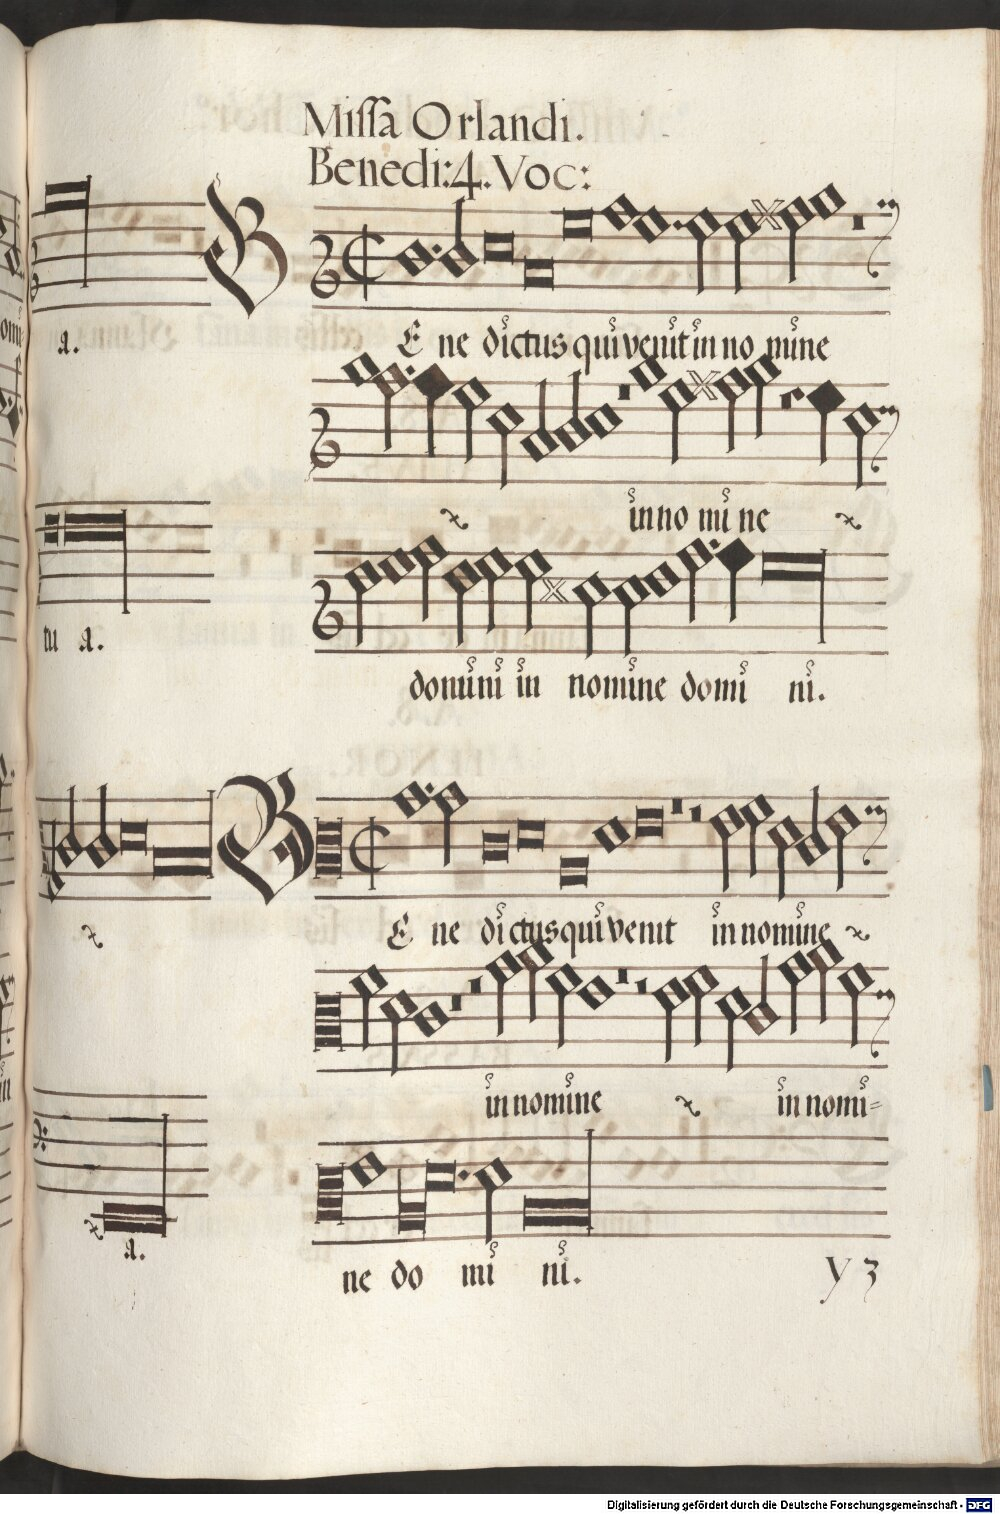 Missa Orlandi.
Benedi: 4. Voc:
a.
BE ne dictus qui venit in no mine
in no mi ne
tu a.
domini in nomine domi ni.
BE ne dictus qui venit in nomine
in nomine in nomi=
a.
ne do mi ni.
y 3
Digitalisierung gefördert durch die Deutsche Forschungsgemeinschaft - DFG